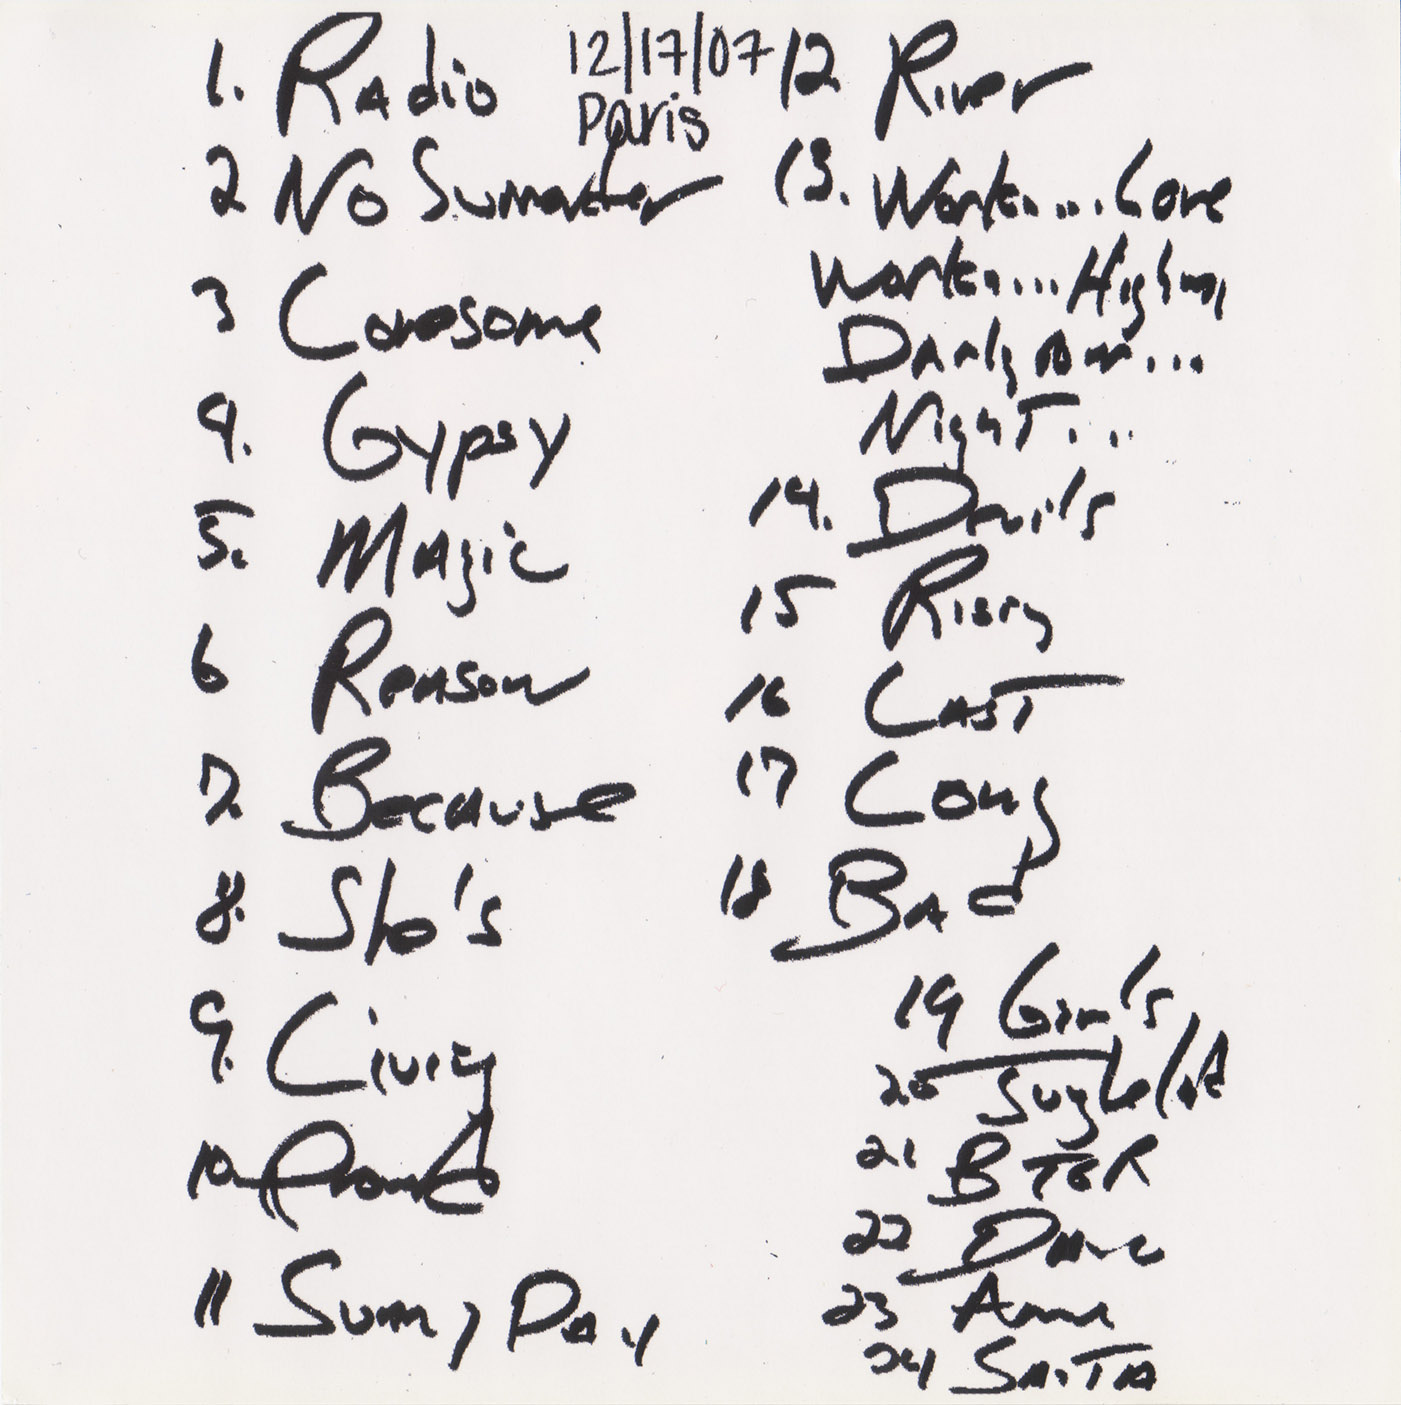 12/17/07
Paris
1. Radio
2 No Surrender
3 Lonesome
4. Gypsy
5. Magic
6 Reason
7. Because
8. She's
9. Livin
10. Promised
11 Sunny Day
12 River
13. Workin...Love
Workin...Highway
Darkness...
Night...
14. Devils
15 Rising
16 Last
17 Long
18 Bad
19 Girls
20
21 BTGR
22 Dance
23 Amer
24 Santa